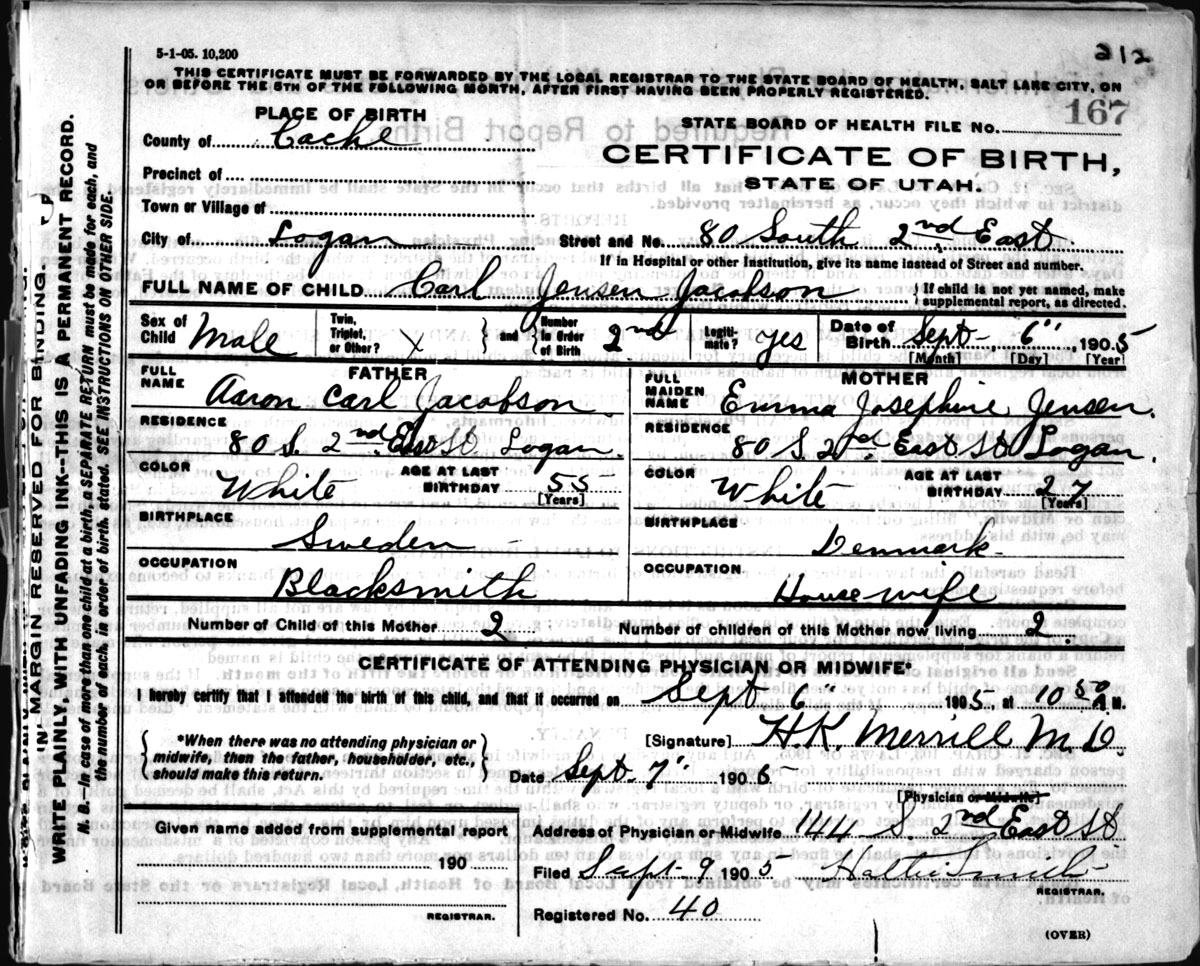 5-1-05. 10,200
212
THIS CERTIFICATE MUST BE FORWARDED BY THE LOCAL REGISTRAR TO THE STATE BOARD OF HEALTH, SALT LAKE CITY, ON
OR BEFORE THE 5TH OF THE FOLLOWING MONTH, AFTER FIRST HAVING BEEN PROPERLY REGISTERED.
PLACE OF BIRTH
STATE BOARD OF HEALTH FILE No. 167
County of Cache
CERTIFICATE OF BIRTH,
STATE OF UTAH.
Precinct of
Town or Village of
City of Logan Street and No. 80 South 2nd East
If in Hospital or other Institution, give its name instead of Street and number.
FULL NAME OF CHILD Carl Jensen Jacobson { If child is not yet named, make
supplemental report, as directed.
Sex of Child Male Twin, Triplet, or Other? x } and { Number in Order of Birth 2nd Legiti-mate? Yes Date of Birth Sept 6" 1905
[Month] [Day] [Year]
FATHER MOTHER
FULL NAME Aaron Carl Jacobson. FULL MAIDEN NAME Emma Josephine Jensen.
RESIDENCE 80 S. 2nd East St Logan. RESIDENCE 80 S. 2nd East St Logan.
COLOR White AGE AT LAST BIRTHDAY 55 [Years] COLOR White AGE AT LAST BIRTHDAY 27 [Years]
BIRTHPLACE Sweden BIRTHPLACE Denmark
OCCUPATION Blacksmith OCCUPATION Housewife
Number of Child of this Mother 2 Number of children of this Mother now living 2.
CERTIFICATE OF ATTENDING PHYSICIAN OR MIDWIFE*
I hereby certify that I attended the birth of this child, and that if occurred on Sept 6" 1905 at 10 50 A.M.
{ *When there was no attending physician or
midwife, then the father, householder, etc.,
should make this return. }
[Signature] H.K. Merrill M.D.
Date Sept 7" 1905
[Physician or Midwife]
Given name added from supplemental report
190
REGISTRAR.
Address of Physician or Midwife 144 S 2nd East St
Filed Sept 9 1905 Hattie Smith
REGISTRAR.
Registered No. 40
(OVER)
IN MARGIN RESERVED FOR BINDING.
WRITE PLAINLY, WITH UNFADING INK--THIS IS A PERMANENT RECORD.
N. B.--In case of more than one child at a birth, a SEPARATE RETURN must be made for each, and
the number of each, in order of birth stated. SEE INSTRUCTIONS ON OTHER SIDE.